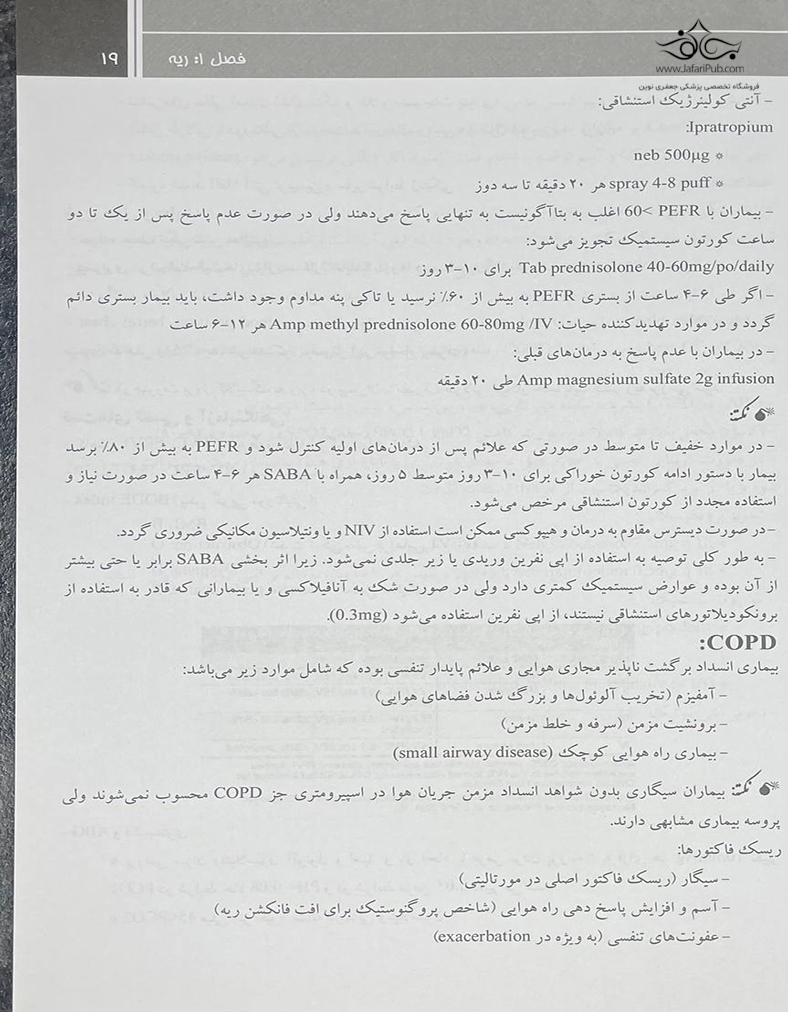 ۱۹
فصل ۱: ریه
www.JafariPub.com
فروشگاه تخصصی پزشکی جعفری نوین
– آنتی کولینرژیک استنشاقی:
Ipratropium:
* neb 500µg
* spray 4-8 puff هر ۲۰ دقیقه تا سه دوز
– بیماران با PEFR >60 اغلب به بتاآگونیست به تنهایی پاسخ می‌دهند ولی در صورت عدم پاسخ پس از یک تا دو
ساعت کورتون سیستمیک تجویز می‌شود:
Tab prednisolone 40-60mg/po/daily برای ۱۰–۳ روز
– اگر طی ۶–۴ ساعت از بستری PEFR به بیش از ۶۰٪ نرسید یا تاکی پنه مداوم وجود داشت، باید بیمار بستری دائم
گردد و در موارد تهدیدکننده حیات: Amp methyl prednisolone 60-80mg /IV هر ۱۲–۶ ساعت
– در بیماران با عدم پاسخ به درمان‌های قبلی:
Amp magnesium sulfate 2g infusion طی ۲۰ دقیقه
نکته:
– در موارد خفیف تا متوسط در صورتی که علائم پس از درمان‌های اولیه کنترل شود و PEFR به بیش از ۸۰٪ برسد
بیمار با دستور ادامه کورتون خوراکی برای ۱۰–۳ روز متوسط ۵ روز، همراه با SABA هر ۶–۴ ساعت در صورت نیاز و
استفاده مجدد از کورتون استنشاقی مرخص می‌شود.
– در صورت دیسترس مقاوم به درمان و هیپوکسی ممکن است استفاده از NIV و یا ونتیلاسیون مکانیکی ضروری گردد.
– به طور کلی توصیه به استفاده از اپی نفرین وریدی یا زیر جلدی نمی‌شود. زیرا اثر بخشی SABA برابر یا حتی بیشتر
از آن بوده و عوارض سیستمیک کمتری دارد ولی در صورت شک به آنافیلاکسی و یا بیمارانی که قادر به استفاده از
برونکودیلاتورهای استنشاقی نیستند، از اپی نفرین استفاده می‌شود (0.3mg).
COPD:
بیماری انسداد برگشت ناپذیر مجاری هوایی و علائم پایدار تنفسی بوده که شامل موارد زیر می‌باشد:
– آمفیزم (تخریب آلوئول‌ها و بزرگ شدن فضاهای هوایی)
– برونشیت مزمن (سرفه و خلط مزمن)
– بیماری راه هوایی کوچک (small airway disease)
نکته: بیماران سیگاری بدون شواهد انسداد مزمن جریان هوا در اسپیرومتری جز COPD محسوب نمی‌شوند ولی
پروسه بیماری مشابهی دارند.
ریسک فاکتورها:
– سیگار (ریسک فاکتور اصلی در مورتالیتی)
– آسم و افزایش پاسخ دهی راه هوایی (شاخص پروگنوستیک برای افت فانکشن ریه)
– عفونت‌های تنفسی (به ویژه در exacerbation)